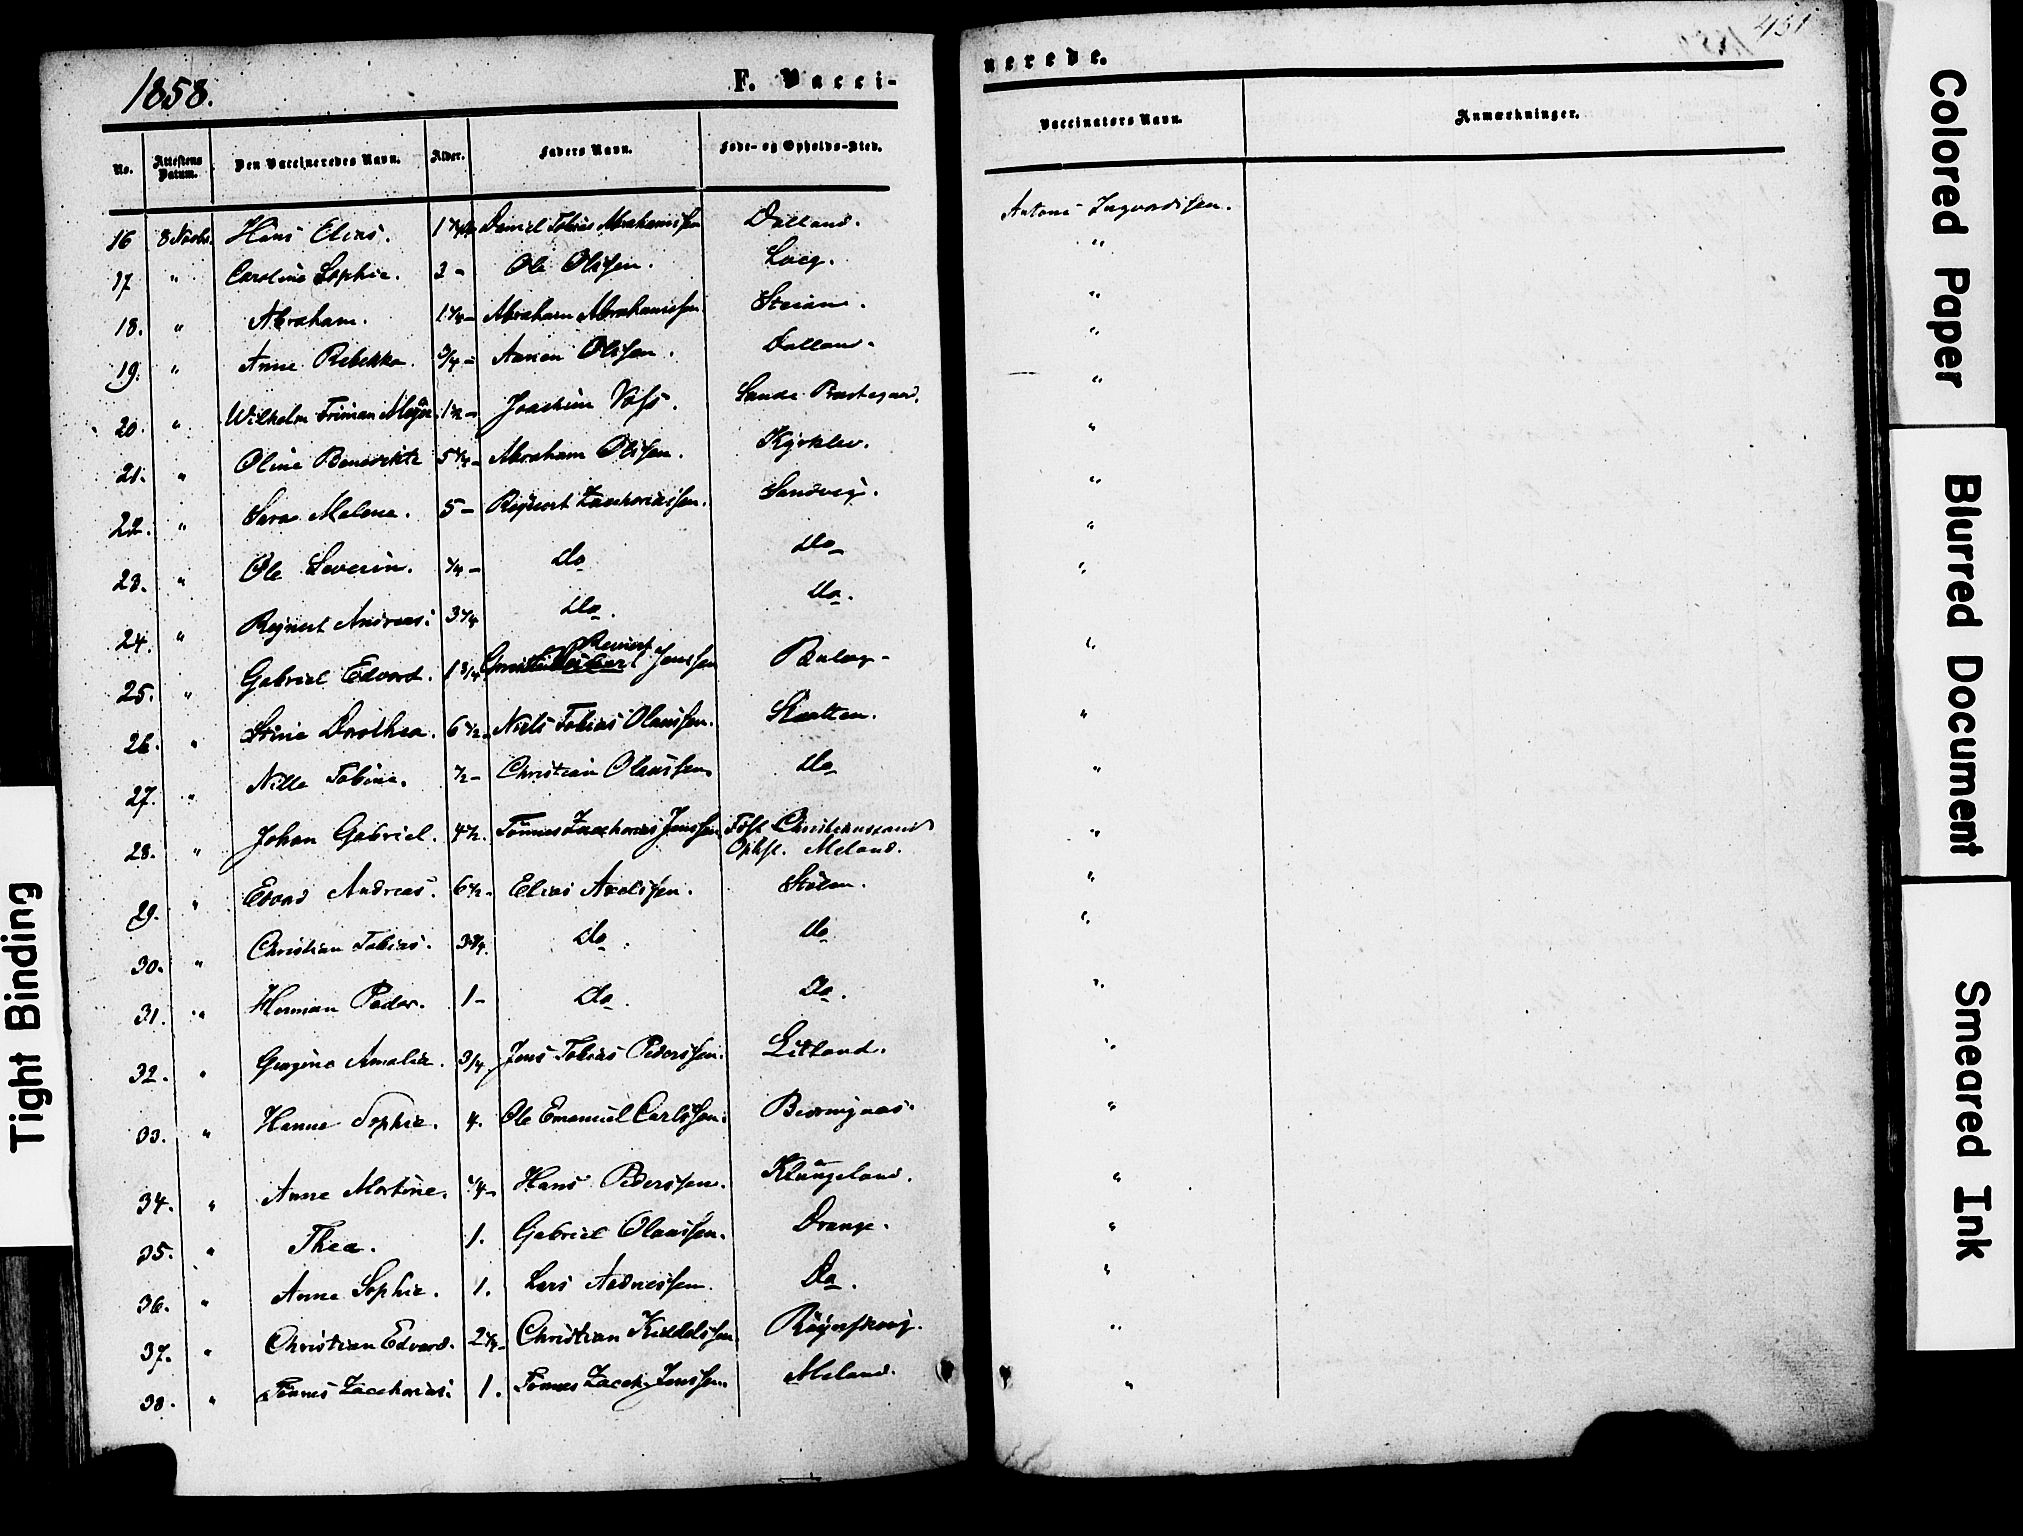 1858.
F. Vacci-
nerede.
431
No. Attestens Datum. Den Vaccineredes Navn. Alder. Faders Navn. Føde- og Opholds-Sted. Vaccinators Navn. Anmærkninger.
16 8 Novbr. Hans Elias. 1 Daniel Tobias Abrahamssen Dalland. Antoni Ingvardssen.
17 " Caroline Sophie. 2 - Ole Olssen. Loeg. "
18. " Abraham. 1 1/4 - Abraham Abrahamssen "
19. " Anne Rebekka. 3/4 - Olssen. "
20. " Wilhelm Meyer. 1 1/2 - Joachim Voss. Sande Præstegaard. "
21. " Oline Benedikte 5 1/4 - Abraham Olssen. "
22. " Sara Malene. 5 - Reinert Zacchariassen. Sandvig. "
23. " Ole Severin. 1/4 - Do Do "
24. " Reinert Andreas. 3 1/4 Do. Do. "
25. " Gabriel Edvard. 1 3/4 Reinert Jenssen "
26. " Stine Dorthea. 6 1/2 - Niels Tobias Olaussen. Skatten. "
27. " Nille Tobine. 1/2 - Christian Olaussen. Do "
28. " Johan Gabriel. 4 1/2. Tönnes Zacharias Jenssen Föst. Christianssand "
Ophst. Meland.
29. " Edvard Andreas. 6 1/2. Elias Axelssen. "
30. " Christian Tobias. 3 3/4. Do. Do "
31. " Herman Peder. 1 - Do. Do. "
32. " Gurgine Amalie. 3/4. Jens Tobias Pederssen. Litland. "
33. " Hanne Sophie. 4. Ole Emanuel Carlssen. "
34. " Anne Martine. 1/4 - Hans Pederssen. Klungeland. "
35. " Thea. 1. Gabriel Olaussen. Drange. "
36. " Anne Sophie. 1. Lars Do. "
37. " Christian Edvard. 2 1/4 - Christian Kiddelssen "
38. " Tönnes Zaccharias. 1. Tönnes Zacch. Jenssen. Meland. "
Tight Binding
Colored Paper
Blurred Document
Smeared Ink